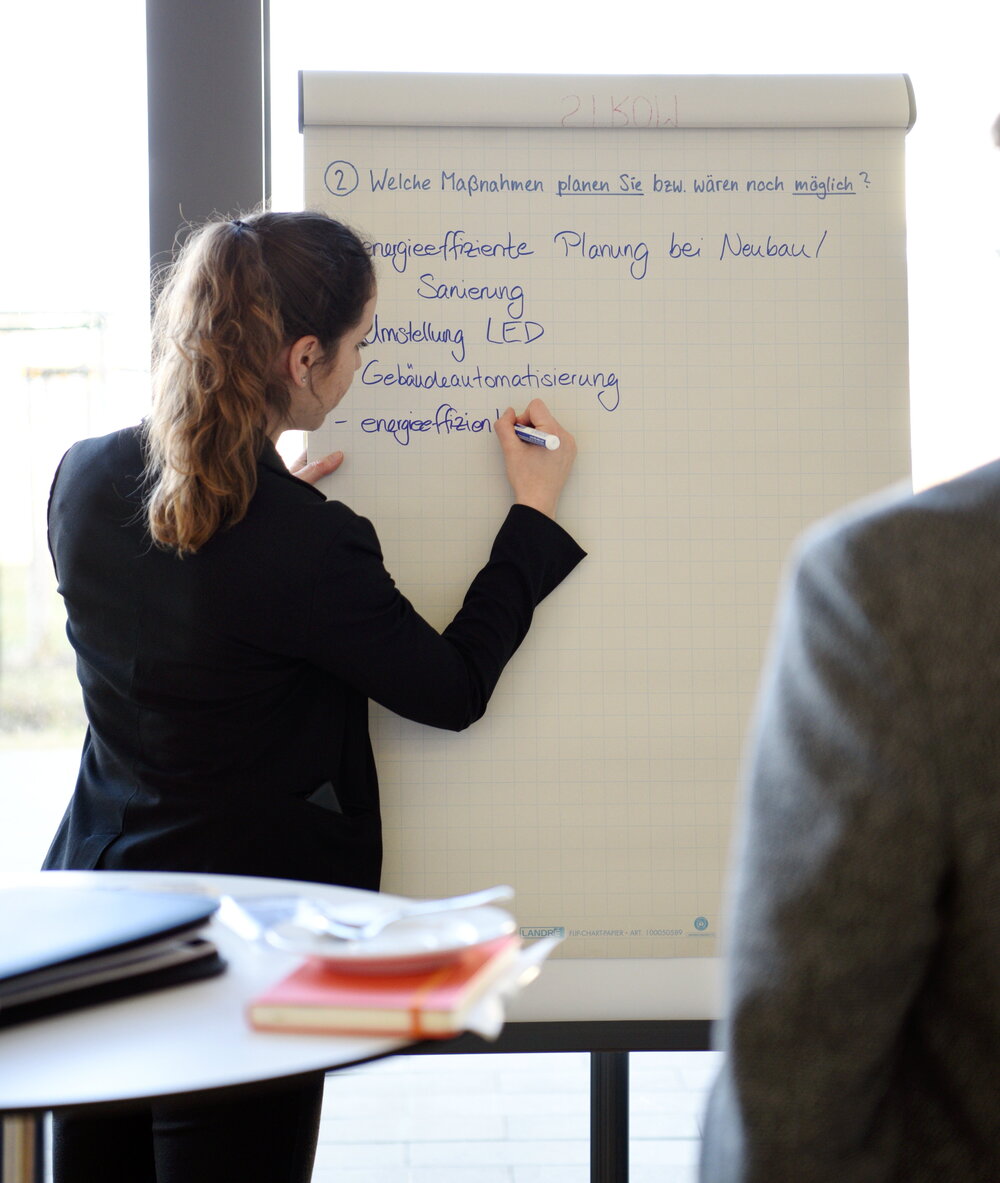 ② Welche Maßnahmen planen Sie bzw. wären noch möglich?
energieeffiziente Planung bei Neubau/
Sanierung
Umstellung LED
Gebäudeautomatisierung
- energieeffizien
LANDRÉ FLIP-CHART-PAPIER • ART. 100050589